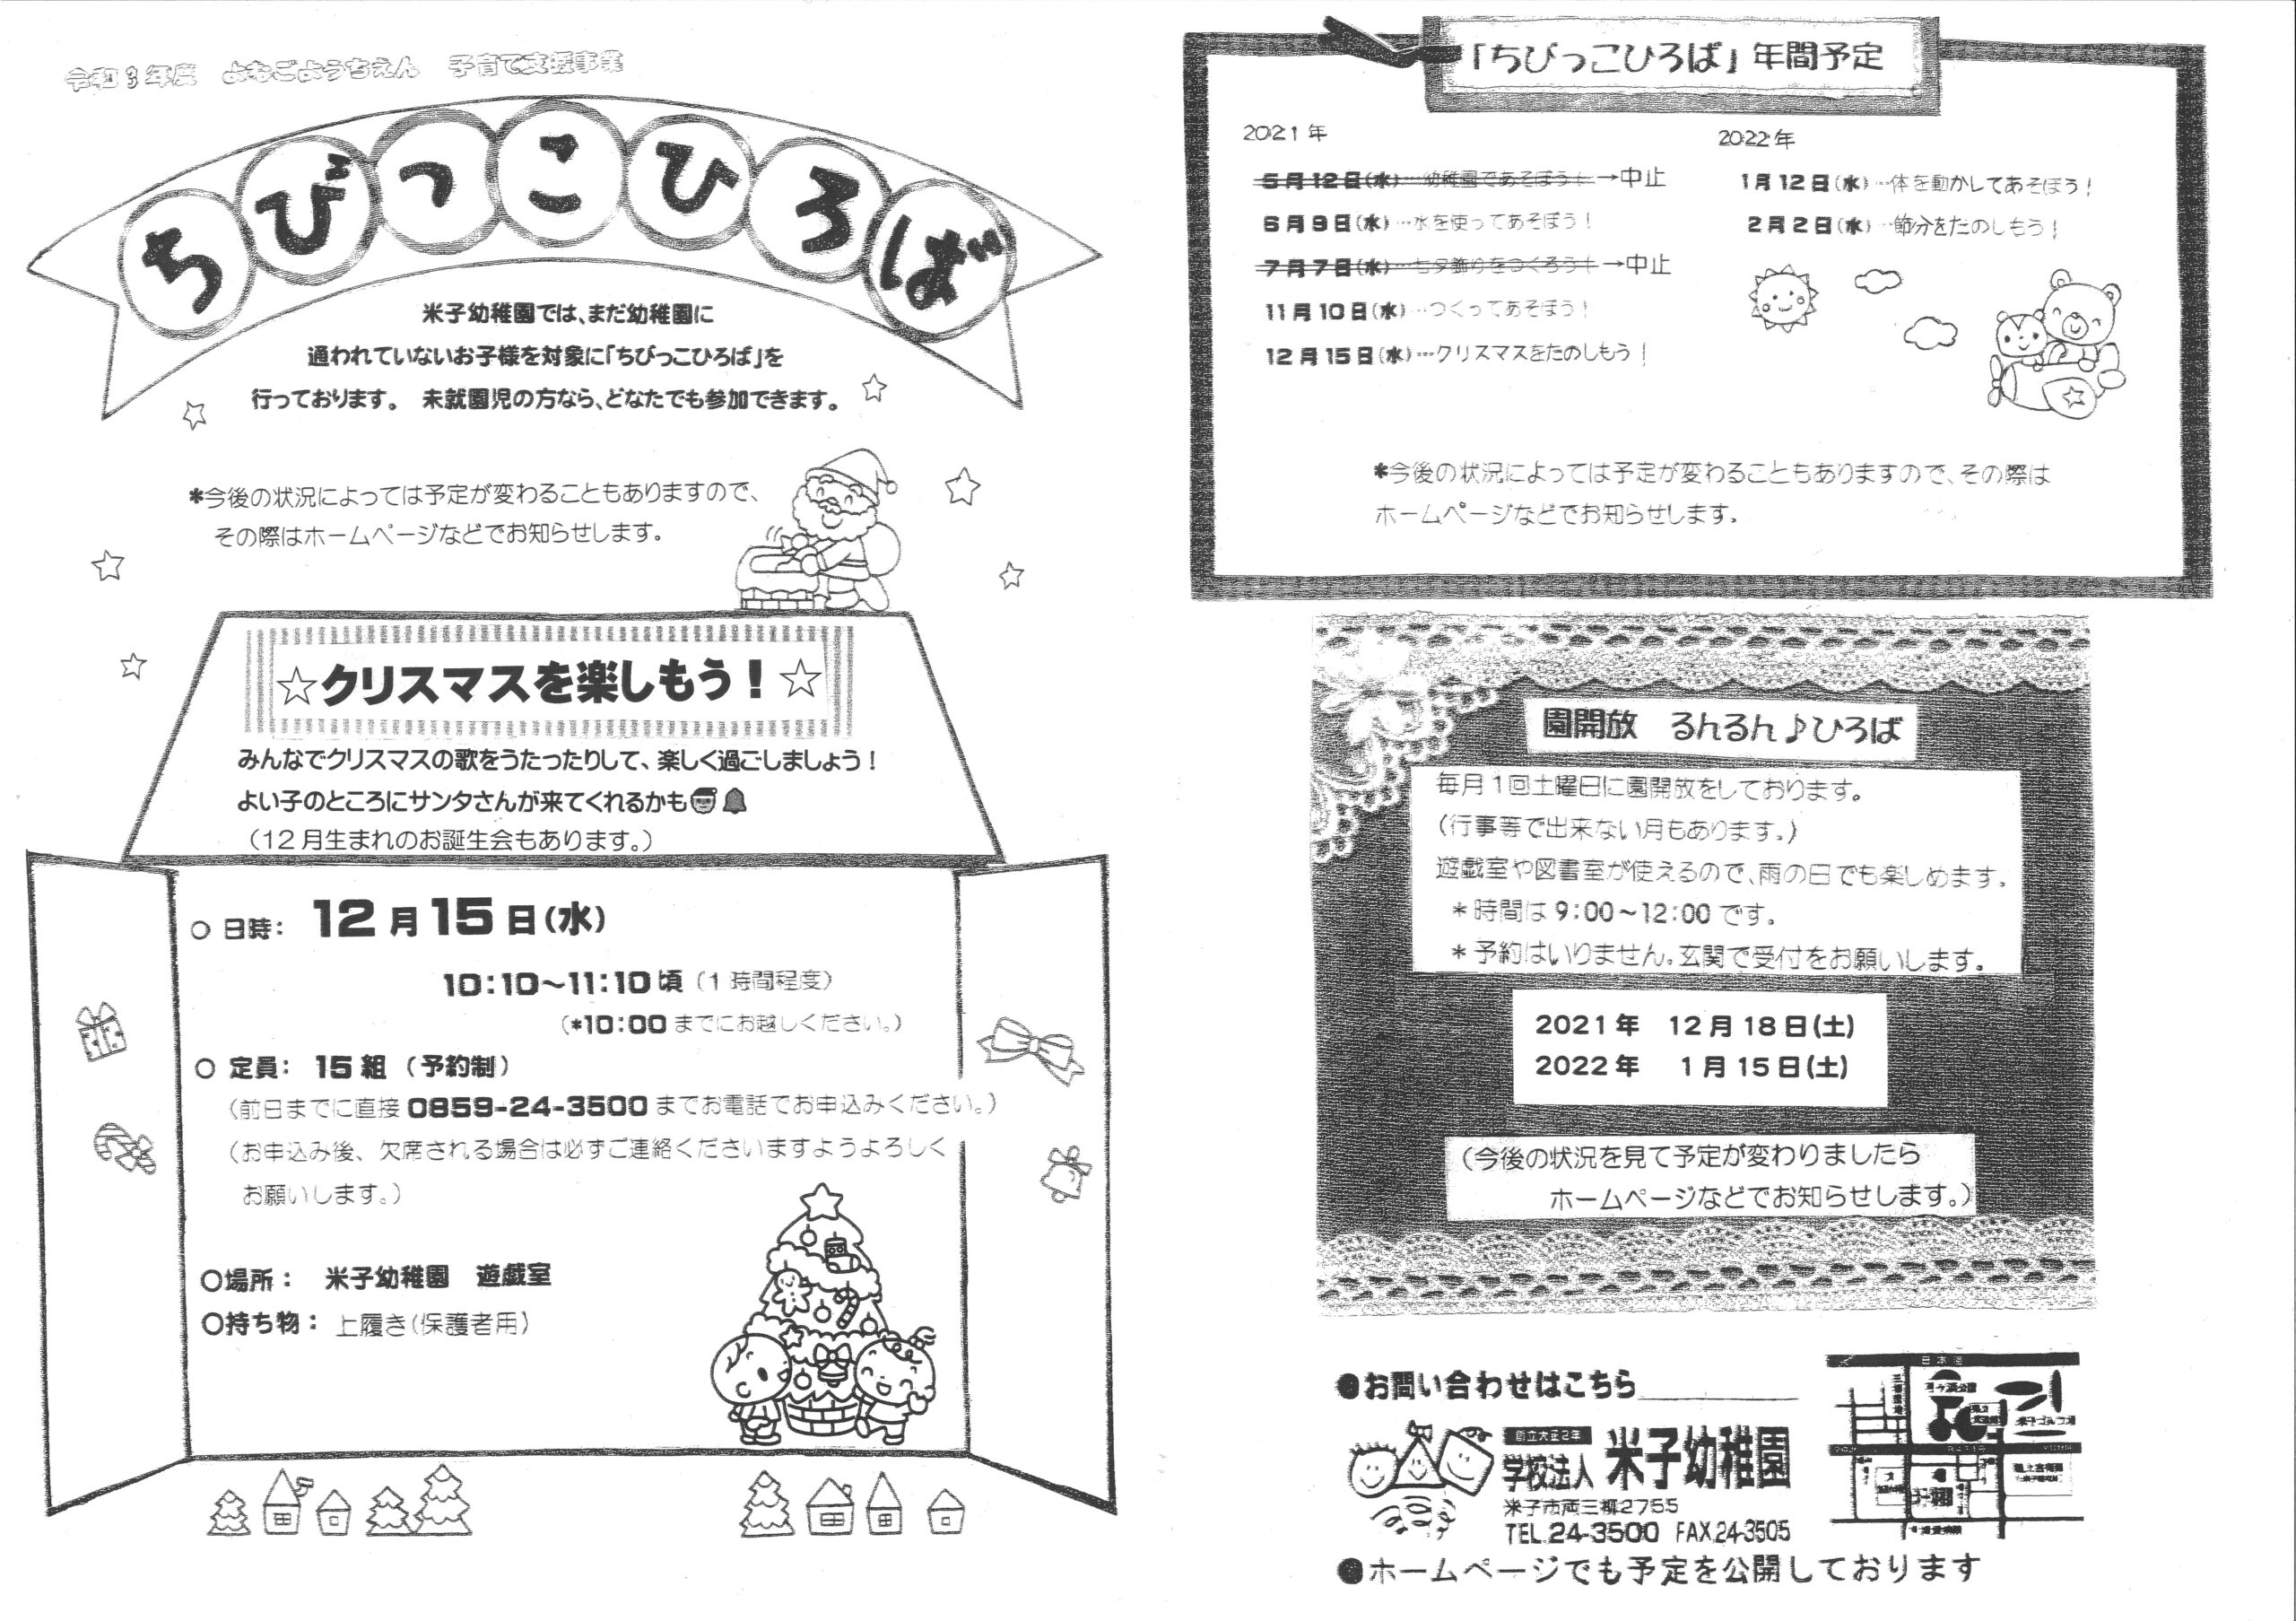 令和3年度 よなごようちえん 子育て支援事業
ちびっこひろば
米子幼稚園では、まだ幼稚園に
通われていないお子様を対象に「ちびっこひろば」を
行っております。 未就園児の方なら、どなたでも参加できます。
*今後の状況によっては予定が変わることもありますので、
その際はホームページなどでお知らせします。
☆クリスマスを楽しもう！☆
みんなでクリスマスの歌をうたったりして、楽しく過ごしましょう！
よい子のところにサンタさんが来てくれるかも🎅🔔
（12月生まれのお誕生会もあります。）
○ 日時： 12月15日(水)
10:10～11:10頃（1時間程度）
（*10:00までにお越しください。）
○ 定員： 15組（予約制）
（前日までに直接0859-24-3500までお電話でお申込みください。）
（お申込み後、欠席される場合は必ずご連絡くださいますようよろしく
お願いします。）
○場所： 米子幼稚園 遊戯室
○持ち物： 上履き(保護者用)
「ちびっこひろば」年間予定
2021年
5月12日(水)…幼稚園であそぼう！→中止
6月9日(水)…水を使ってあそぼう！
7月7日(水)…七夕飾りをつくろう！→中止
11月10日(水)…つくってあそぼう！
12月15日(水)…クリスマスをたのしもう！
2022年
1月12日(水)…体を動かしてあそぼう！
2月2日(水)…節分をたのしもう！
*今後の状況によっては予定が変わることもありますので、その際は
ホームページなどでお知らせします。
園開放 るんるん♪ひろば
毎月1回土曜日に園開放をしております。
（行事等で出来ない月もあります。）
遊戯室や図書室が使えるので、雨の日でも楽しめます。
*時間は9:00～12:00です。
*予約はいりません。玄関で受付をお願いします。
2021年 12月18日(土)
2022年 1月15日(土)
（今後の状況を見て予定が変わりましたら
ホームページなどでお知らせします。）
●お問い合わせはこちら
創立大正2年
学校法人 米子幼稚園
米子市両三柳2755
TEL.24-3500 FAX.24-3505
日本海
●ホームページでも予定を公開しております